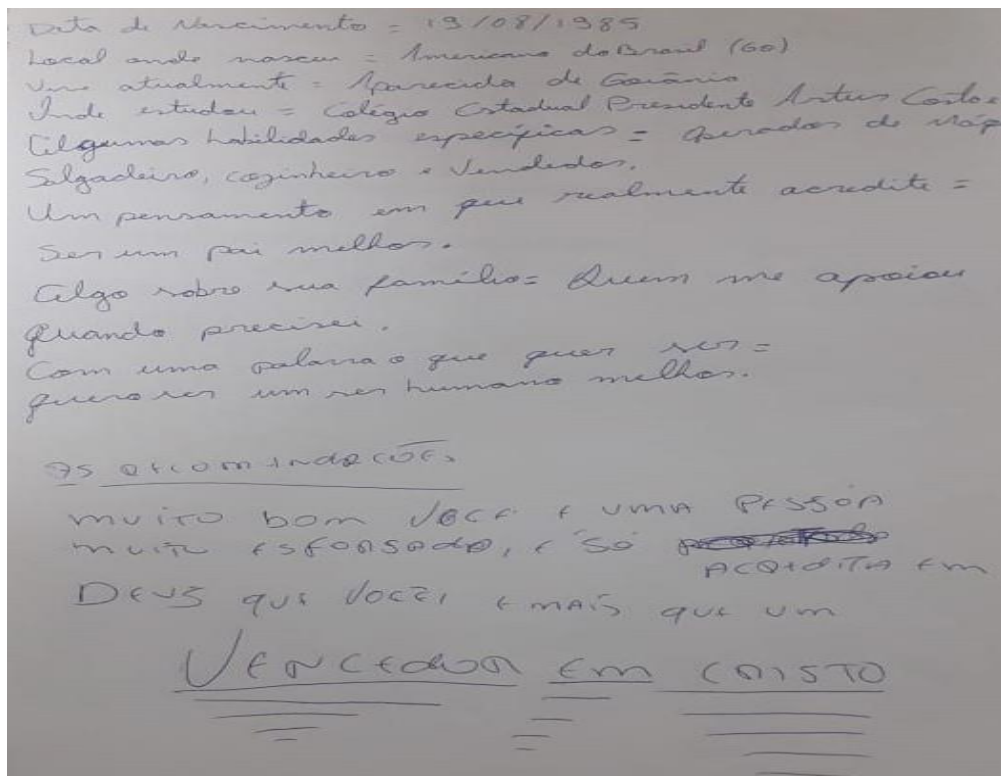 Data de Nascimento = 19/08/1985
Local onde nasceu = Americano do Brasil (GO)
Vive atualmente = Aparecida de Goiânia
Onde estudou = Colégio Estadual Presidente Artur Costa e
Algumas habilidades específicas = Operador de Máq
Salgadeiro, cozinheiro e Vendedor.
Um pensamento em que realmente acredite =
Ser um pai melhor.
Algo sobre sua família = Quem me apoiou
quando precisei.
Com uma palavra o que quer ser =
quero ser um ser humano melhor.
As recomindações
muito bom você e uma PESSÓA
muito esforsado, e só
ACREDITA Em
DEUS que você, e mais que um
VENCEDOR Em CRISTO